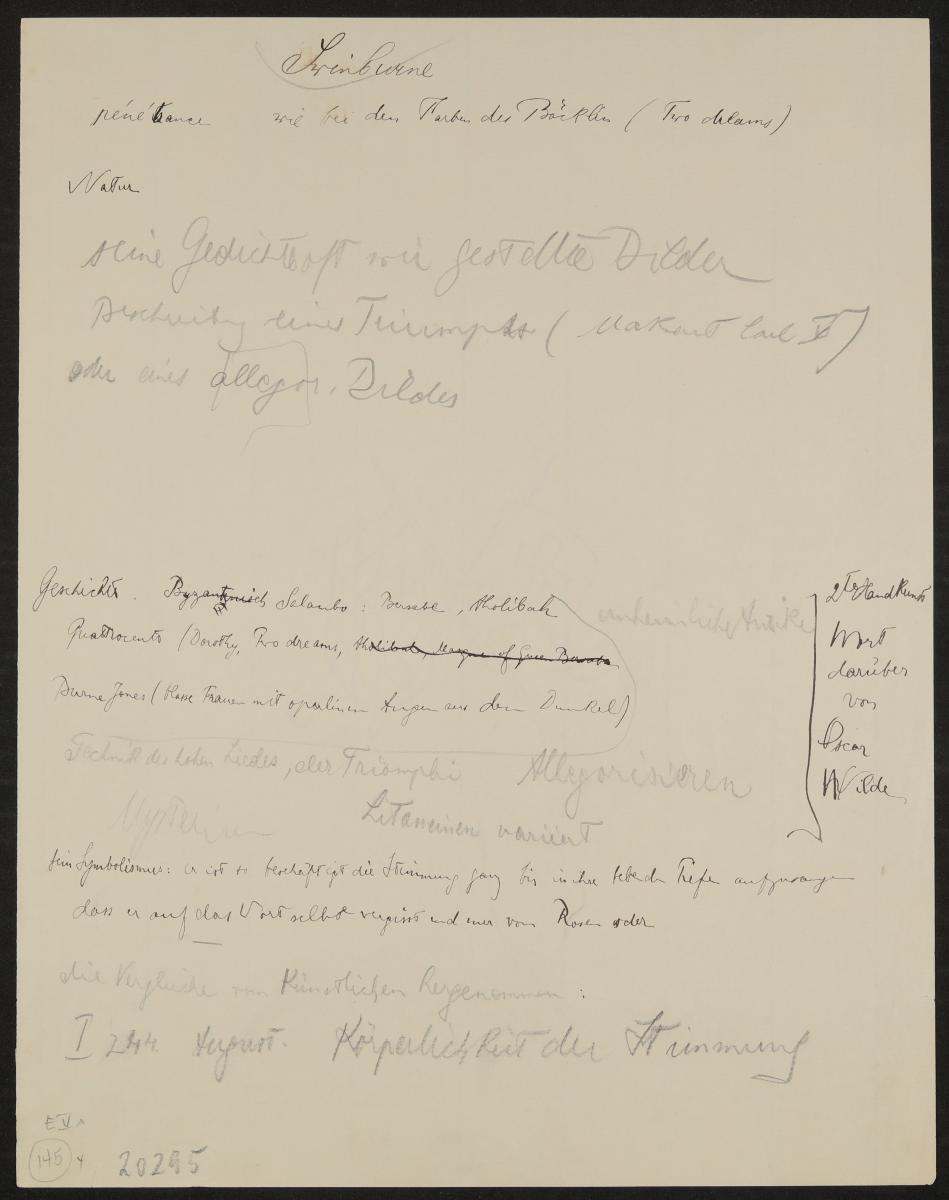 Swinburne
pénétrance wie bei den Farben des Böcklin (Two dreams)
Natur
seine Gedichte oft wie gestellte Bilder
Beschreibung eines Triumphs (Makart Carl V)
oder eines allegor. Bildes
Geschichte. Byzantinisch Salambo: Bersabe, Aholibah
unheimliche Antike
Quattrocento (Dorothy, Two dreams, Aholibah, Masque of Queen Bersabe
Burne Jones (blasse Frauen mit opalinen Augen aus dem Dunkel)
2te Hand Kunst
Wort
darüber
von
Oscar
Wilde
Technik des hohen Liedes, der Triomphi Allegorisieren
Mysterien Litaneien variiert
sein Symbolismus: er ist so beschäftigt die Stimmung ganz bis in ihre bebenden Tiefen aufzusaugen
dass er auf das Wort selbst vergisst und nur von Rosen oder
die Vergleiche vom Künstlichen hergenommen:
I August. Körperlichkeit der Stimmung
E V
145
20295